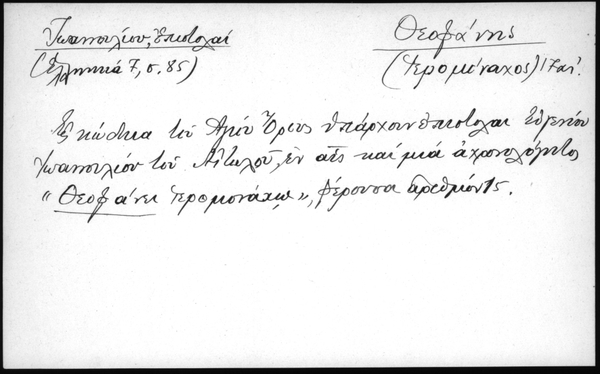 Ἰωαννουλίου, Ἐπιστολαί
(Ἑλληνικά 7, σ. 85)
Θεοφάνης
(Ἱερομόναχος) 17 αἰ.
Ἐν κώδικα τοῦ Ἁγίου Ὄρους ὑπάρχουν ἐπιστολαί Εὐγενίου
Γιαννουλίου τοῦ Αἰτωλοῦ, ἐν αἷς καί μιά ἀχρονολόγητος
"Θεοφάνει ἱερομονάχῳ", φέρουσα ἀριθμόν 15.